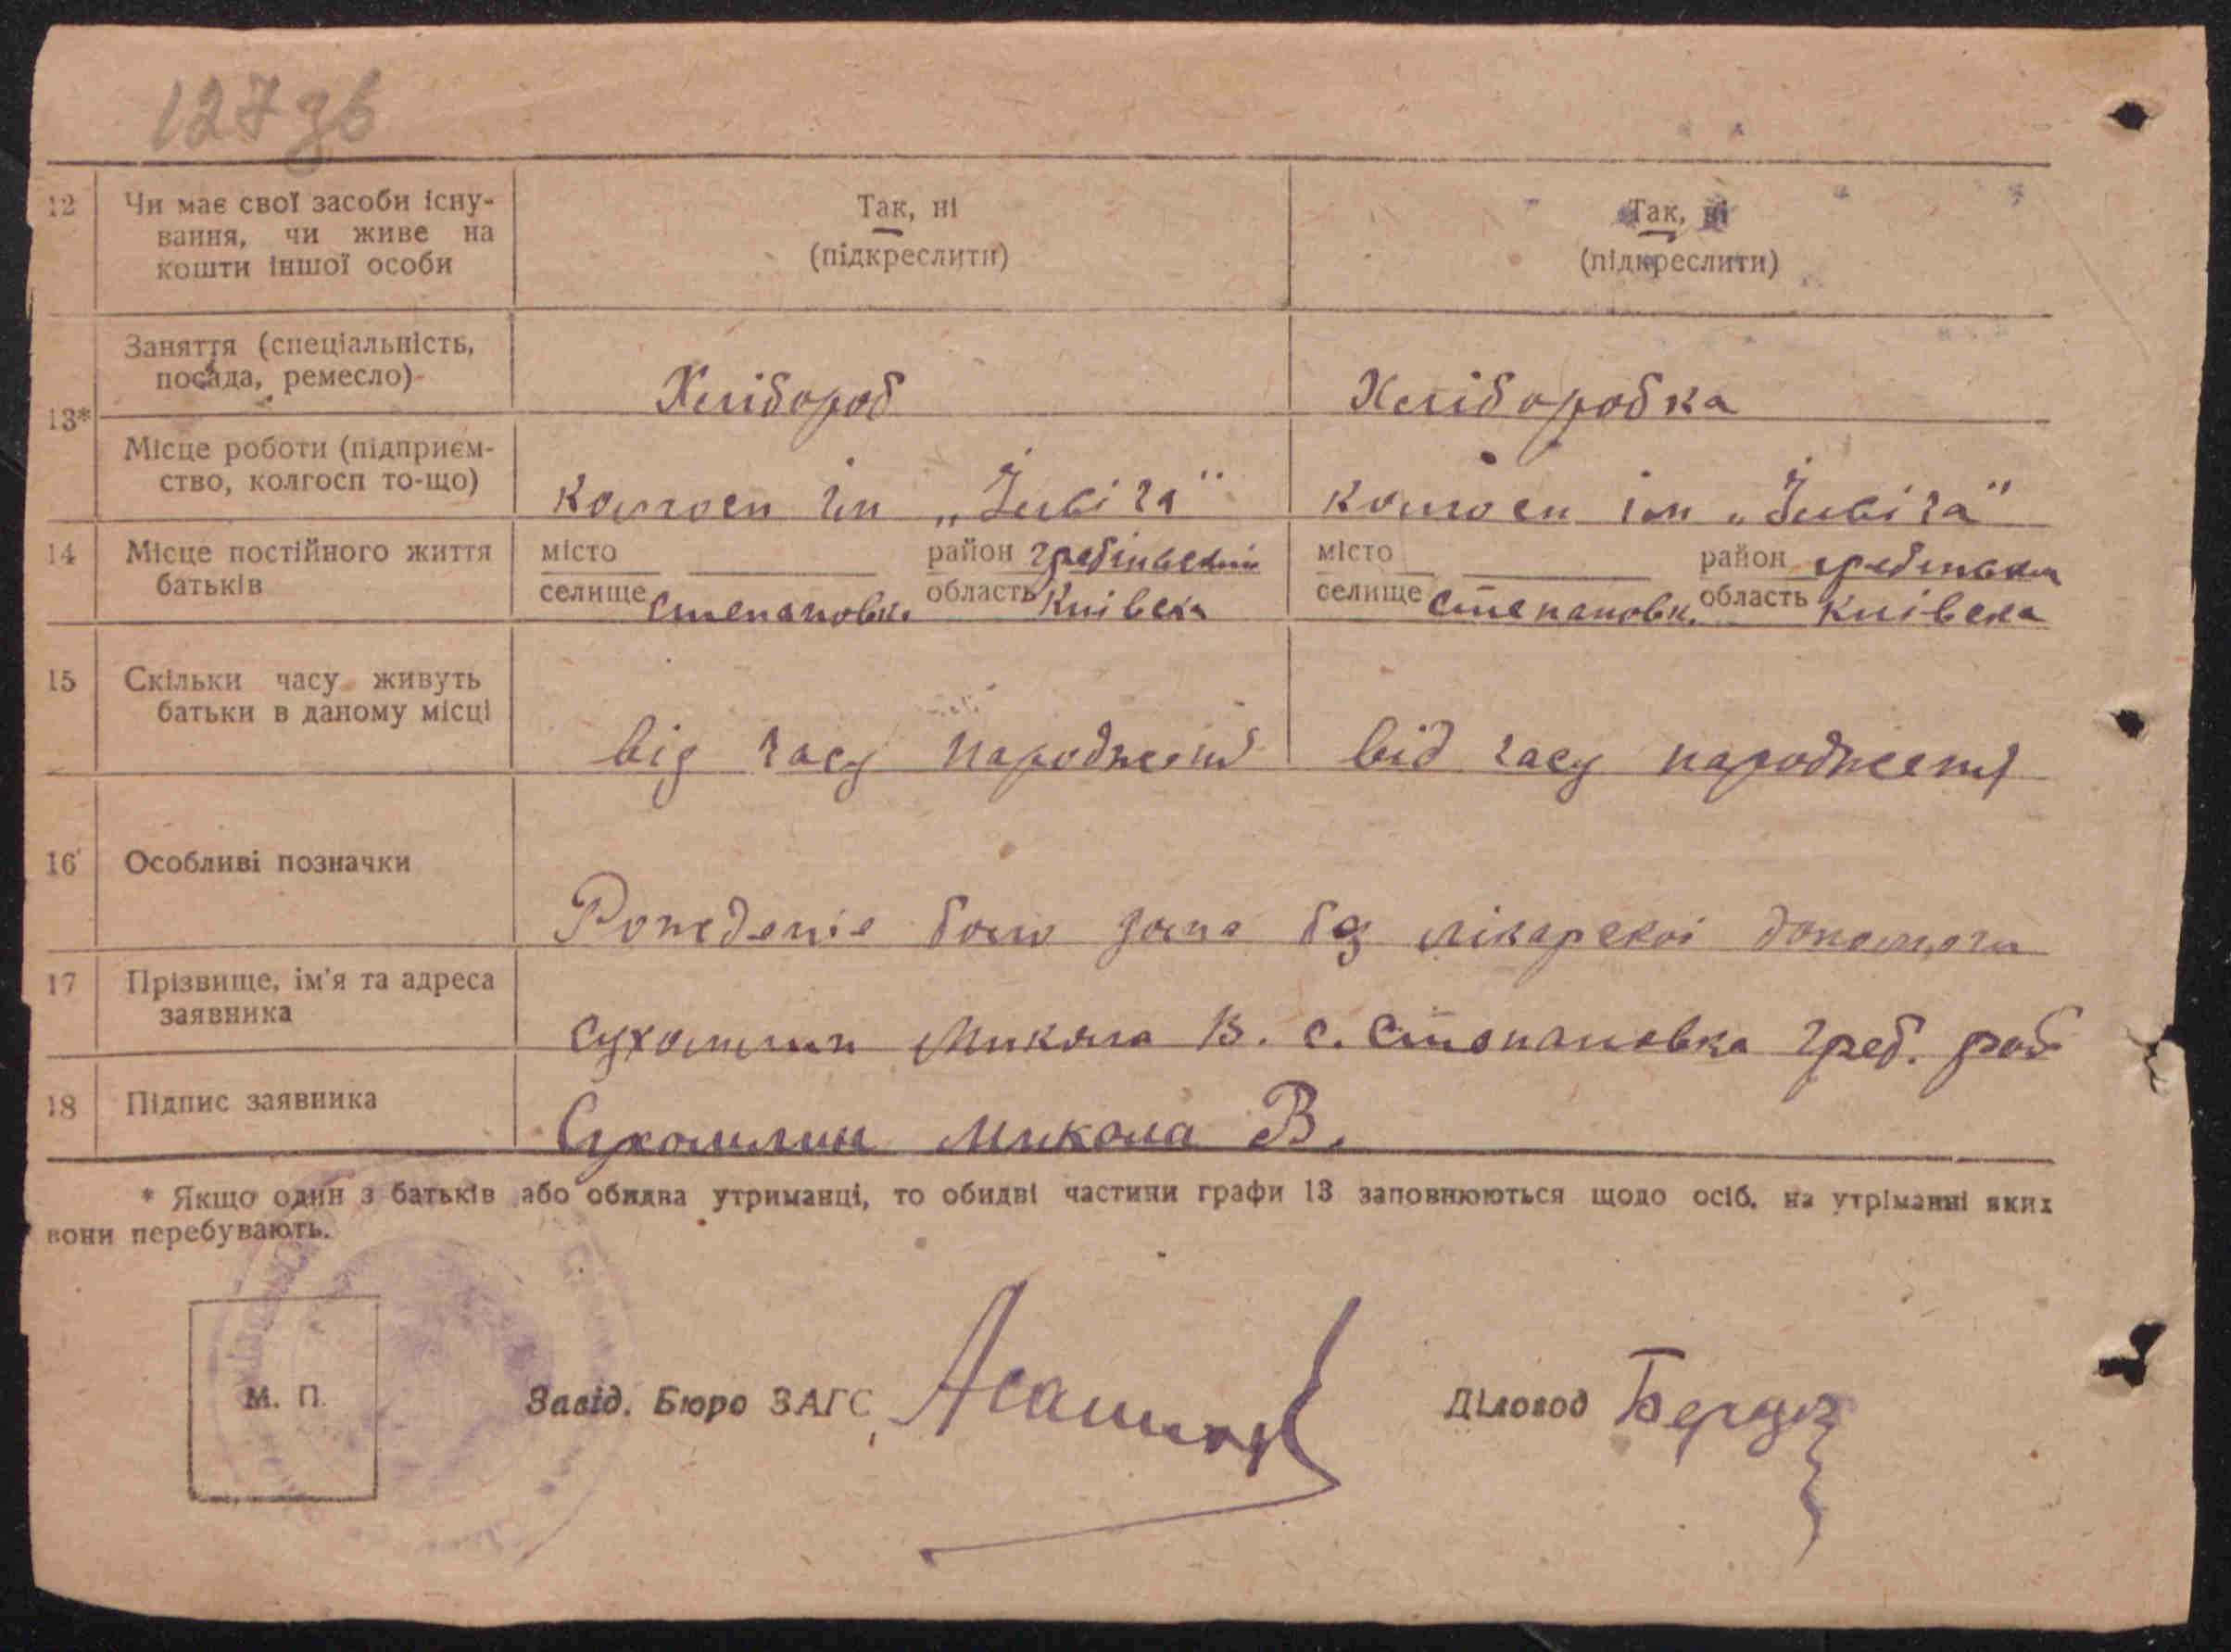 127 зв
12 Чи має свої засоби існу-
вання, чи живе на
кошти іншої особи
Так, ні
(підкреслити)
Так, ні
(підкреслити)
13*
Заняття (спеціальність,
посада, ремесло)
Хлібороб
Хліборобка
Місце роботи (підприєм-
ство, колгосп то-що)
колгосп ім
колгосп ім
14 Місце постійного життя
батьків
місто район гребінвский
селище Степановк. область Київска
місто район
селище Степановк. область Київска
15 Скільки часу живуть
батьки в даному місці
від часу народження
від часу народження
16 Особливі позначки
Рождение було дома без лікарскої допомоги
17 Прізвище, ім'я та адреса
заявника
Сухомлин Микола В. с. Степановка Греб. рай
18 Підпис заявника
Сухомлин Микола В.
* Якщо один з батьків або обидва утриманці, то обидві частини графи 13 заповнюються щодо осіб, на утріманні яких
вони перебувають.
М. П.
Завід. Бюро ЗАГС
Діловод